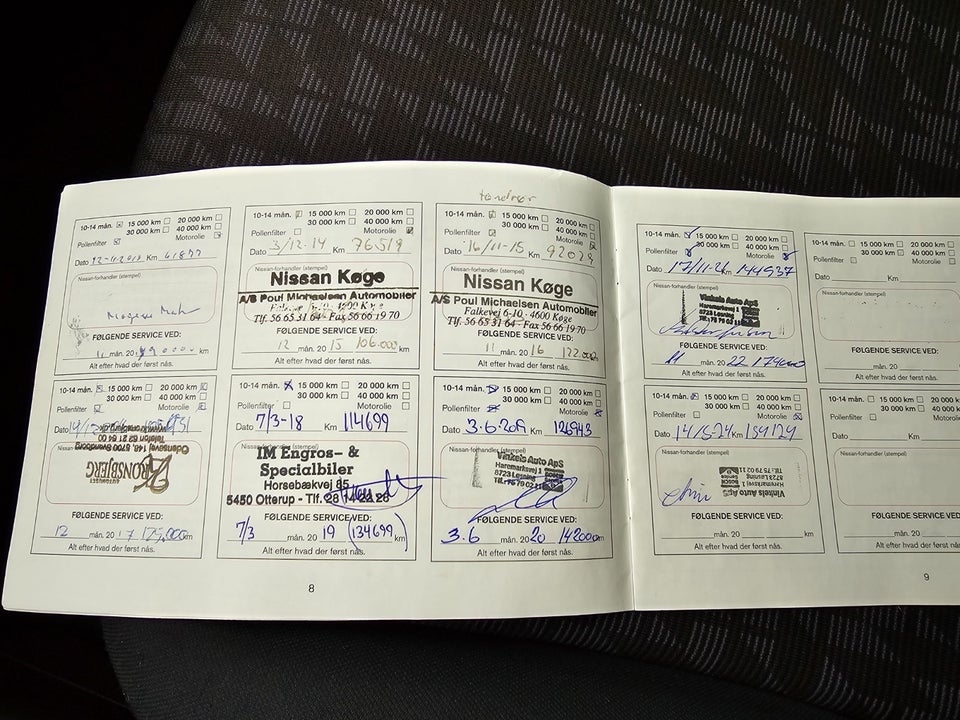 tændrør
10-14 mån. 15 000 km 20 000 km
30 000 km 40 000 km
Pollenfilter Motorolie
Dato Km 61877
Nissan-forhandler (stempel)
FØLGENDE SERVICE VED:
mån. 20 km
Alt efter hvad der først nås.
10-14 mån. 15 000 km 20 000 km
30 000 km 40 000 km
Pollenfilter Motorolie
Dato 3/12-14 Km 76519
Nissan Køge
A/S Poul Michaelsen Automobiler
4600 Køge
Tlf. 56 65 31 64 - Fax 56 66 19 70
FØLGENDE SERVICE VED:
12 mån. 20 15 106.000 km
Alt efter hvad der først nås.
10-14 mån. 15 000 km 20 000 km
30 000 km 40 000 km
Pollenfilter Motorolie
Dato 16/11-15 Km 92028
Nissan-forhandler (stempel)
Nissan Køge
A/S Poul Michaelsen Automobiler
Falkevej 6-10 - 4600 Køge
Tlf. 56 65 31 64 - Fax 56 66 19 70
FØLGENDE SERVICE VED:
11 mån. 20 16 122.000 km
Alt efter hvad der først nås.
10-14 mån. 15 000 km 20 000 km
30 000 km 40 000 km
Pollenfilter Motorolie
Dato Km
Odensevej 148, 5700 Svendborg
Telefon 62 21 64 00
KRONSBJERG
FØLGENDE SERVICE VED:
12 mån. 20 17 km
Alt efter hvad der først nås.
10-14 mån. 15 000 km 20 000 km
30 000 km 40 000 km
Pollenfilter Motorolie
7/3-18 114699
IM Engros- &
Specialbiler
Horsebækvej 85
5450 Otterup - Tlf. 28 14 22 28
FØLGENDE SERVICE VED:
7/3 mån. 20 19 (134699 km)
Alt efter hvad der først nås.
10-14 mån. 15 000 km 20 000 km
30 000 km 40 000 km
Pollenfilter Motorolie
Dato 3.6.2019 Km 126943
Nissan-forhandler
Vinkels Auto ApS
Haremarksvej 1
8723 Løsning
Tlf. 75 79 02 11
FØLGENDE SERVICE VED:
3.6 mån. 20 20 142000 km
Alt efter hvad der først nås.
8
10-14 mån. 15 000 km 20 000 km
30 000 km 40 000 km
Pollenfilter Motorolie
Dato 17/11-21 Km 144937
Nissan-forhandler (stempel)
Vinkels Auto ApS
Haremarksvej 1
8723 Løsning
Tlf.: 75 79 02 11
FØLGENDE SERVICE VED:
11 mån. 20 22 174000
Alt efter hvad der først nås.
10-14 mån. 15 000 km
30 000 km
Pollenfilter
Dato Km
Nissan-forhandler (stempel)
FØLGENDE SERVICE
mån. 20
Alt efter hvad der først
10-14 mån. 15 000 km 20 000 km
30 000 km 40 000 km
Pollenfilter Motorolie
Dato 14/5-24 Km 159129
Nissan-forhandler (stempel)
Vinkels Auto ApS
Haremarksvej 1
8723 Løsning
Tlf.: 75 79 02 11
FØLGENDE SERVICE VED:
mån. 20 km
Alt efter hvad der først nås.
10-14 mån. 15 000 km
30 000 km
Pollenfilter
Dato Km
Nissan-forhandler (stempel)
FØLGENDE SERVICE
mån. 20
Alt efter hvad der først
9